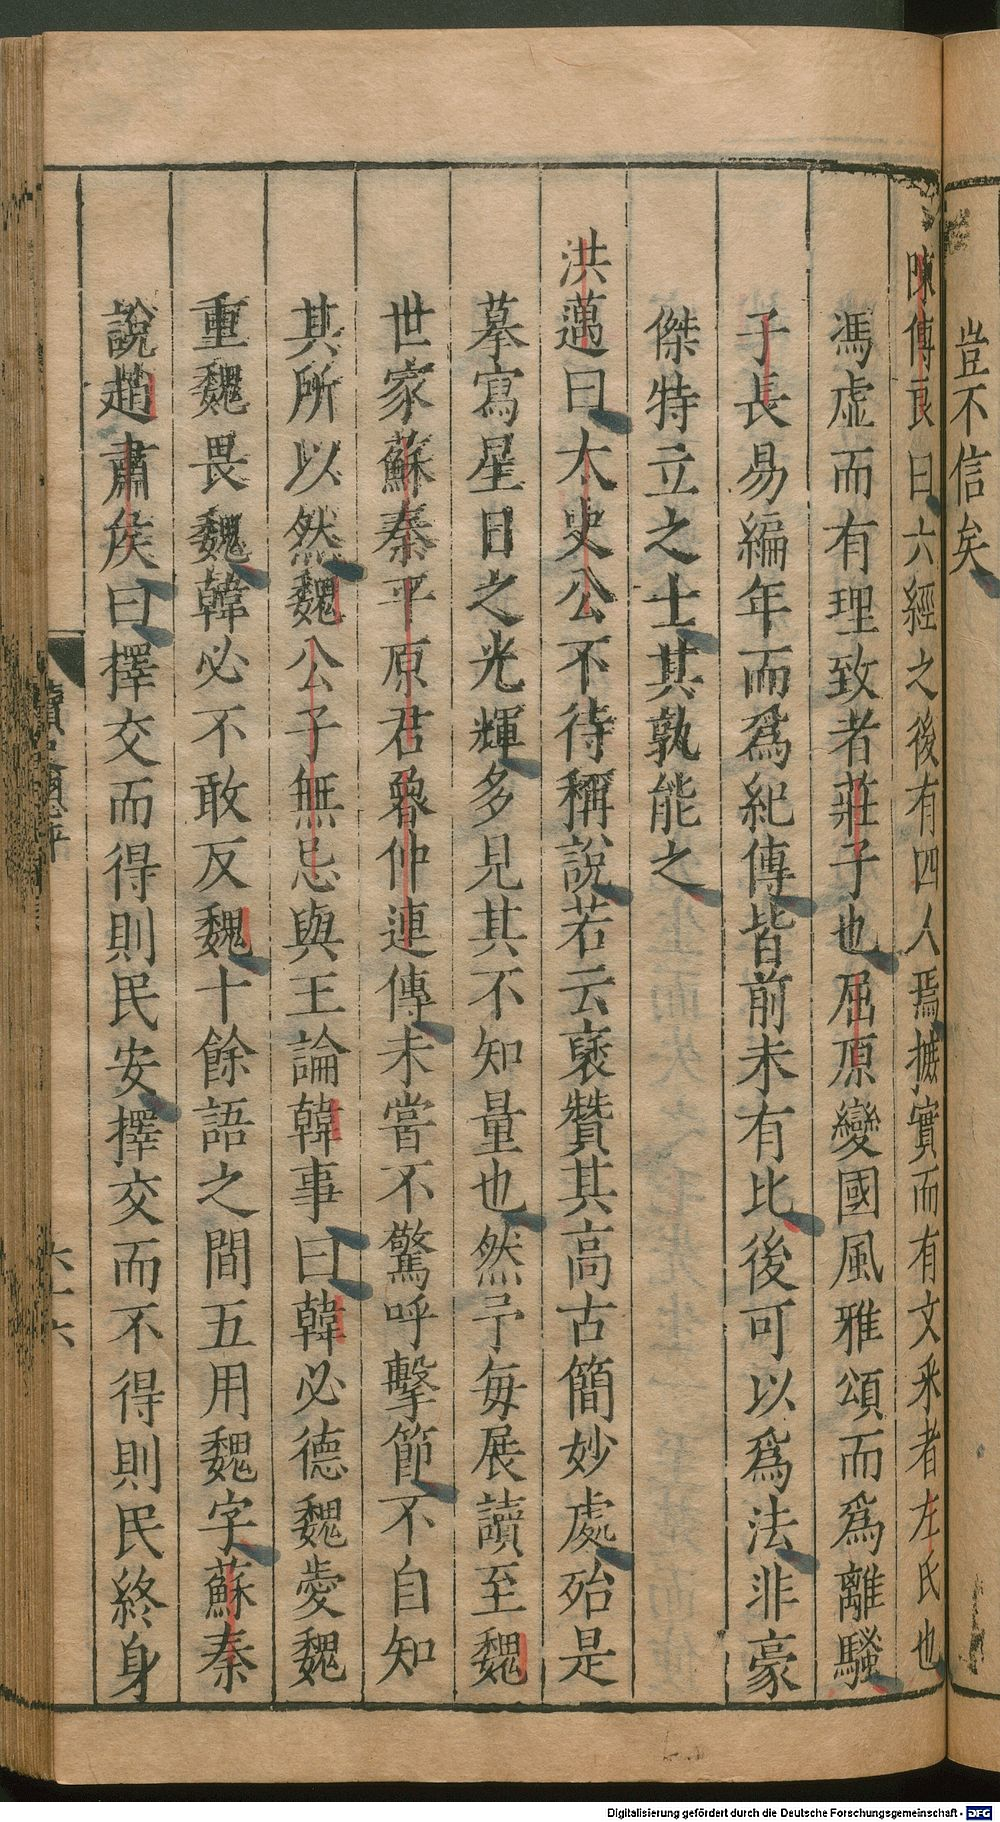 豈不信矣
陳傅良曰六經之後有四人焉摭實而有文采者左氏也
馮虛而有理致者莊子也屈原變國風雅頌而爲離騷
子長易編年而爲紀傳皆前未有比後可以爲法非豪
傑特立之士其孰能之
洪邁曰太史公不待稱說若云褒贊其高古簡妙處殆是
摹寫星日之光輝多見其不知量也然予每展讀至魏
世家蘇秦平原君魯仲連傳未嘗不驚呼擊節不自知
其所以然魏公子無忌與王論韓事曰韓必德魏愛魏
重魏畏魏韓必不敢反魏十餘語之間五用魏字蘇秦
說趙肅侯曰擇交而得則民安擇交而不得則民終身
六十六
Digitalisierung gefördert durch die Deutsche Forschungsgemeinschaft - DFG